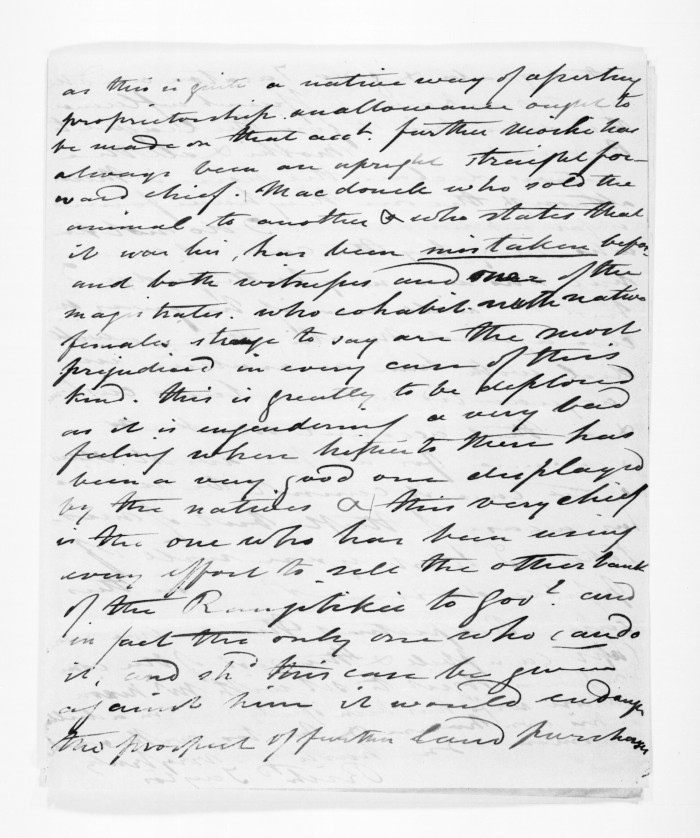 as this is quite a native way of asserting
proprietorship. an allowance ought to
be made on that acct. further Moshe has
always been an upright straightfor-
ward chief. Macdonell who sold the
animal to another & who states that
it was his, has been mistaken before
and both witness and one of the
magistrates. who cohabit with native
females strange to say are the most
prejudiced in every case of this
kind. this is greatly to be deplored
as it is engendering a very bad
feeling where hitherto there has
been a very good one displayed
by the natives & this very chief
is the one who has been using
every effort to sell the other bank
of the to Govt. and
in fact the only one who can do
it, and shd this case be given
against him it would endanger
the prospect of further land purchases